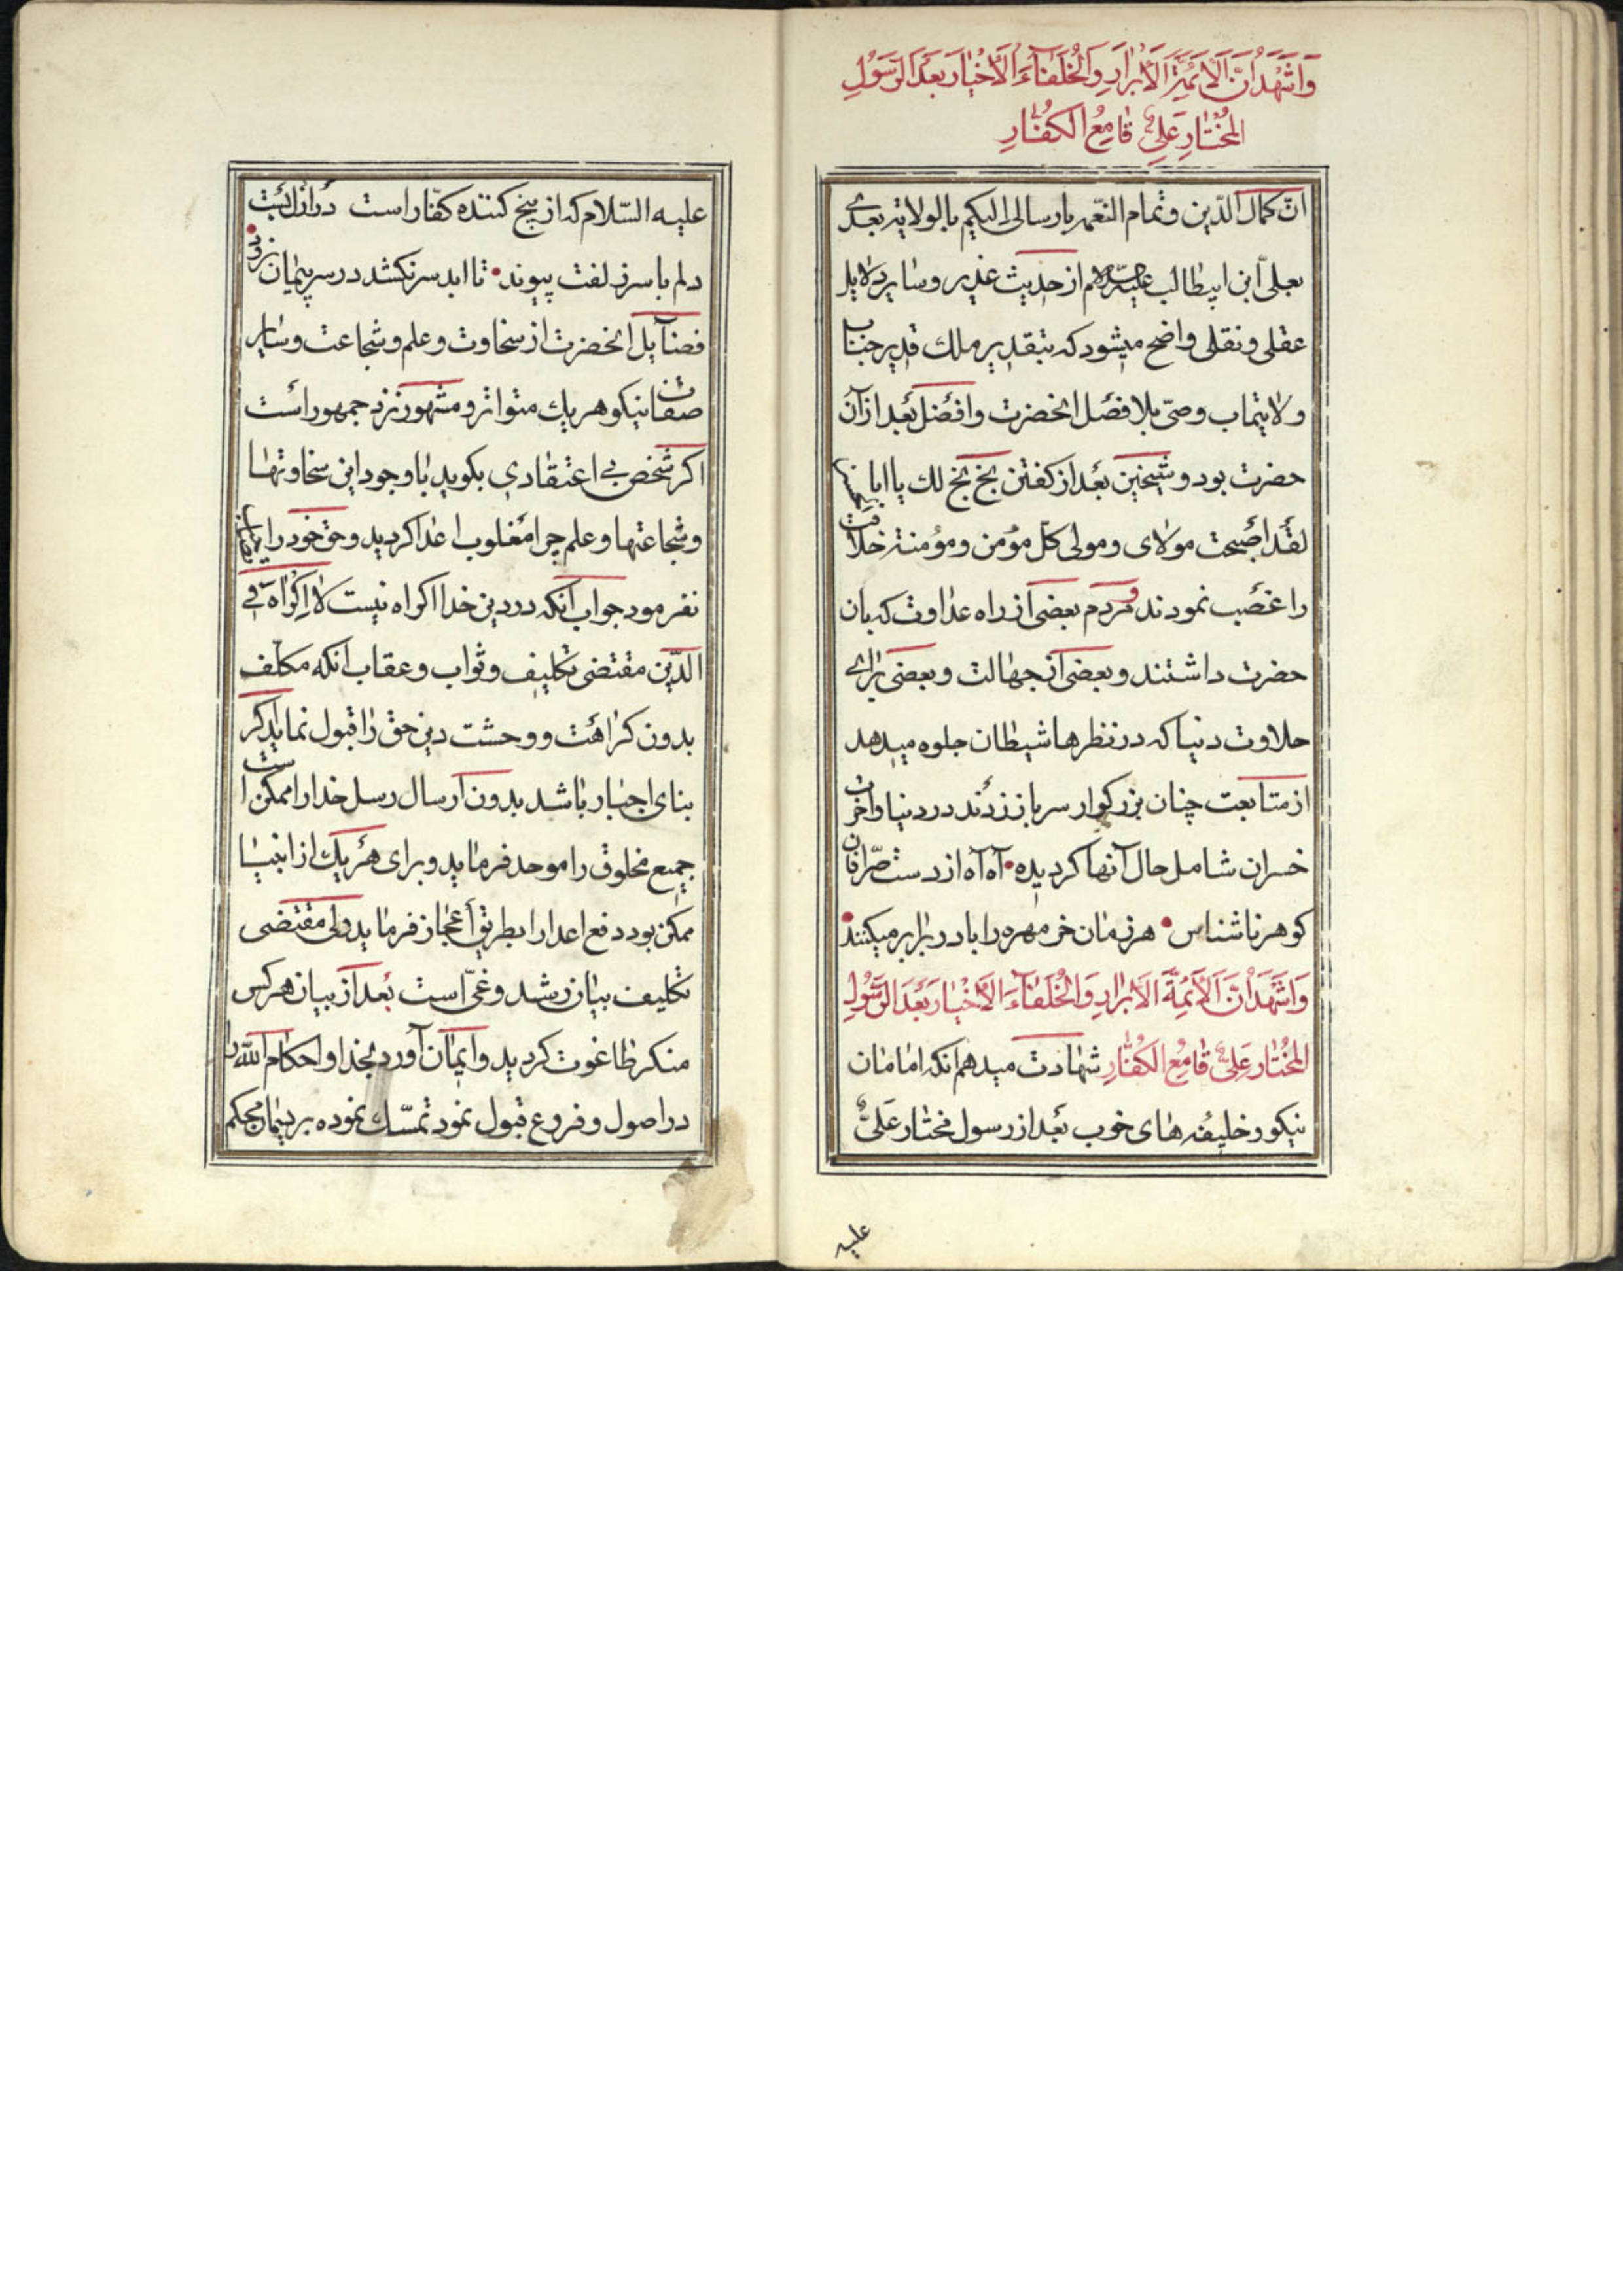 وَاَشْهَدُ اَنَّ اَلْاَئِمَّةَ الْاَبْرٰارِ وَالْخُلَفٰآءَ الْاَخْيٰارِ بَعْدَ الرَّسُولِ
الْمُخْتٰارِ عَلِىٌّ قٰامِعُ الْكُفّٰارِ
انّ كمال الدّين و تمام النّعمه بارسالى اليكم بالولاية بعدى
بعلىّ ابن ابيطالب عليه السلام از حديث غدير و ساير دلايل
عقلى و نقلى واضح ميشود كه بتقدير ملك قدير جناب
ولايتماب وصىّ بلا فصل انحضرت و افضل بعد از آن
حضرت بود و شيخين بعد از كفتن بخ بخ لك يا ابا الحسن
لقد اصبحت مولاى و مولى كلّ مؤمن و مؤمنة خلافت
را غصب نمودند و مردم بعضى از راه عداوت كه بان
حضرت داشتند و بعضى از جهالت و بعضى براى
حلاوت دنيا كه در نظرها شيطان جلوه ميدهد
از متابعت چنان بزركوار سر باز زدند در دنيا و آخرت
خسران شامل حال آنها كرديده آه آه از دست صرّافان
كوهر ناشناس هر زمان خر مهره را با در برابر ميكنند
وَاَشْهَدُ اَنَّ الْاَئِمَّةَ الْاَبْرٰارِ وَالْخُلَفٰآءَ الْاَخْيٰارِ بَعْدَ الرَّسُولِ
الْمُخْتٰارِ عَلِىٌّ قٰامِعُ الْكُفّٰارِ شهادت ميدهم انكه امامان
نيكو و خليفه هاى خوب بعد از رسول مختار عَلىٌّ
عليه
عليه السّلام كه از بيخ كننده كفّار است در ازل بست
دلم با سر زلفت پيوند تا ابد سر نكشد در سر پيمان نرود
فضايل انحضرت از سخاوت و علم و شجاعت و ساير
صفات نيكو هر يك متواتر و مشهور نزد جمهور است
اكر شخص بى اعتقادى بكويد با وجود اين سخاوتها
و شجاعتها و علم چرا مغلوب اعدا كرديد و حق خود را
نفرمود جواب آنكه در دين خدا اكراه نيست لا اِكْرٰاهَ فى
الدّين مقتضى تكليف و ثواب و عقاب انكه مكلّف
بدون كراهت و وحشت دين حق را قبول نمايد اكر
بناى اجبار باشد بدون ارسال رسل خدا را ممكن است
جميع مخلوق را موحد فرمايد و براى هر يك از انبيا
ممكن بود دفع اعدا را بطريق اعجاز فرمايد ولى مقتضى
تكليف بيان رشد و غىّ است بعد از بيان هر كس
منكر طاغوت كرديد و ايمان آورد بخدا و احكام الله را
در اصول و فروع قبول نمود تمسّك نموده بريسمان محكم